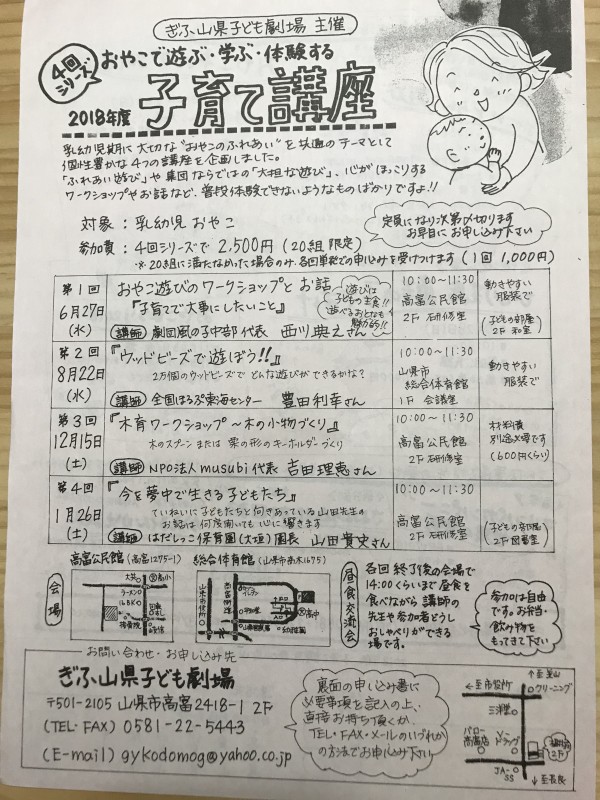 ぎふ山県子ども劇場 主催
4回シリーズ
おやこで遊ぶ・学ぶ・体験する
2018年度 子育て講座
乳幼児期に大切な“おやこのふれあい”を共通のテーマとして
個性豊かな4つの講座を企画しました。
「ふれあい遊び」や集団ならではの「大胆な遊び」、心がほっこりする
ワークショップやお話など、普段体験できないようなものばかりですよ!!
対象：乳幼児おやこ
定員になり次第〆切ります
お早目にお申し込み下さい
参加費：4回シリーズで2,500円(20組限定)
※20組に満たなかった場合のみ、各回単発での申し込みを受けつけます(1回1,000円)
第1回
6月27日
(水)
おやこ遊びのワークショップとお話
『子育てで大事にしたいこと』
講師 劇団風の子中部代表 西川典之さん
遊びは
子どもの主食!!
遊べるおとなも
魅力的!!
10:00〜11:30
高富公民館
2F 研修室
動きやすい
服装で
(子どもの部屋
2F 和室)
第2回
8月22日
(水)
『ウッドビーズで遊ぼう!!』
2万個のウッドビーズでどんな遊びができるかな?
講師 全国ほるぷ東海センター 豊田利幸さん
10:00〜11:30
山県市
総合体育館
1F 会議室
動きやすい
服装で
第3回
12月15日
(土)
『木育ワークショップ〜木の小物づくり』
木のスプーンまたは栗の形のキーホルダーづくり
講師 NPO法人musubi代表 吉田理恵さん
10:00〜11:30
高富公民館
2F 研修室
材料費
別途必要です
(600円くらい)
第4回
1月26日
(土)
『今を夢中で生きる子どもたち』
ていねいに子どもたちと向きあっている山田先生の
お話は何度聞いても心に響きます
講師 はだしっこ保育園(大垣)園長 山田貴史さん
10:00〜11:30
高富公民館
2F 研修室
(子どもの部屋
2F 図書室)
会場
高富公民館(高富1275-1)
総合体育館(山県市高木1675)
昼食交流会
各回終了後の会場で
14:00くらいまで昼食を
食べながら講師の
先生や参加者どうし
おしゃべりができる
場です。
参加は自由
です。お弁当・
飲み物を
もってきて下さい
お問い合わせ・お申し込み先
ぎふ山県子ども劇場
〒501-2105 山県市高富2418-1 2F
(TEL・FAX) 0581-22-5443
(E-mail) gykodomog@yahoo.co.jp
裏面の申し込み書に
必要事項を記入の上、
直接お持ち頂くか、
TEL・FAX・メールのいづれか
の方法でお申し込み下さい
←至市役所
クリーニング
三洋堂
バロー
高富店
Vドラッグ
JA-SS
↓至長良